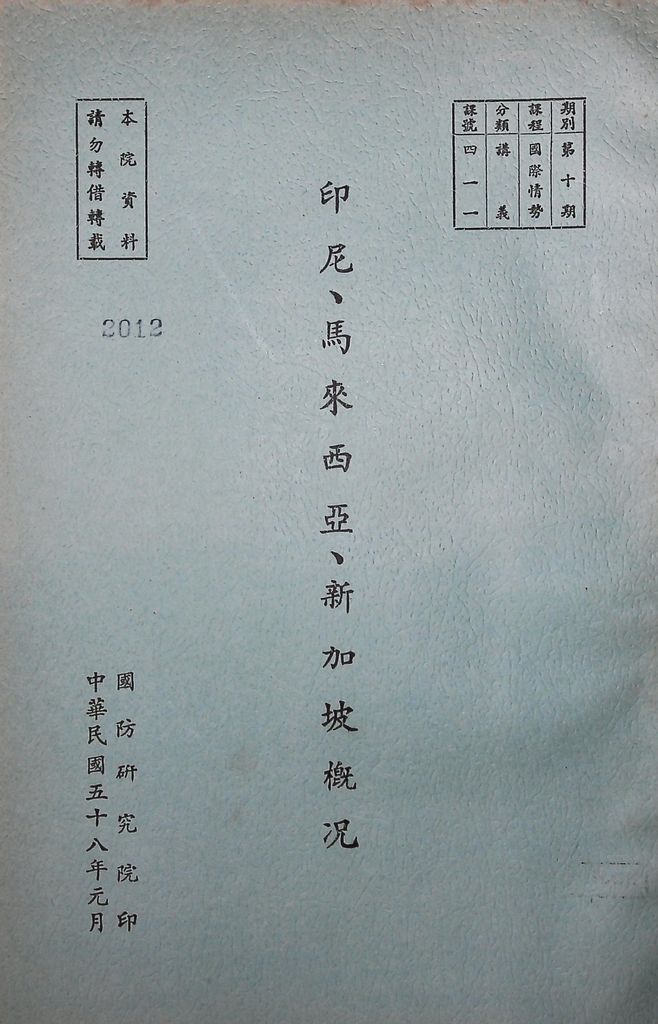 期別 第十期
課程 國際情勢
分類 講義
課號 四一一
印尼、馬來西亞、新加坡概況
本院資料
請勿轉借轉載
2012
國防研究院印
中華民國五十八年元月